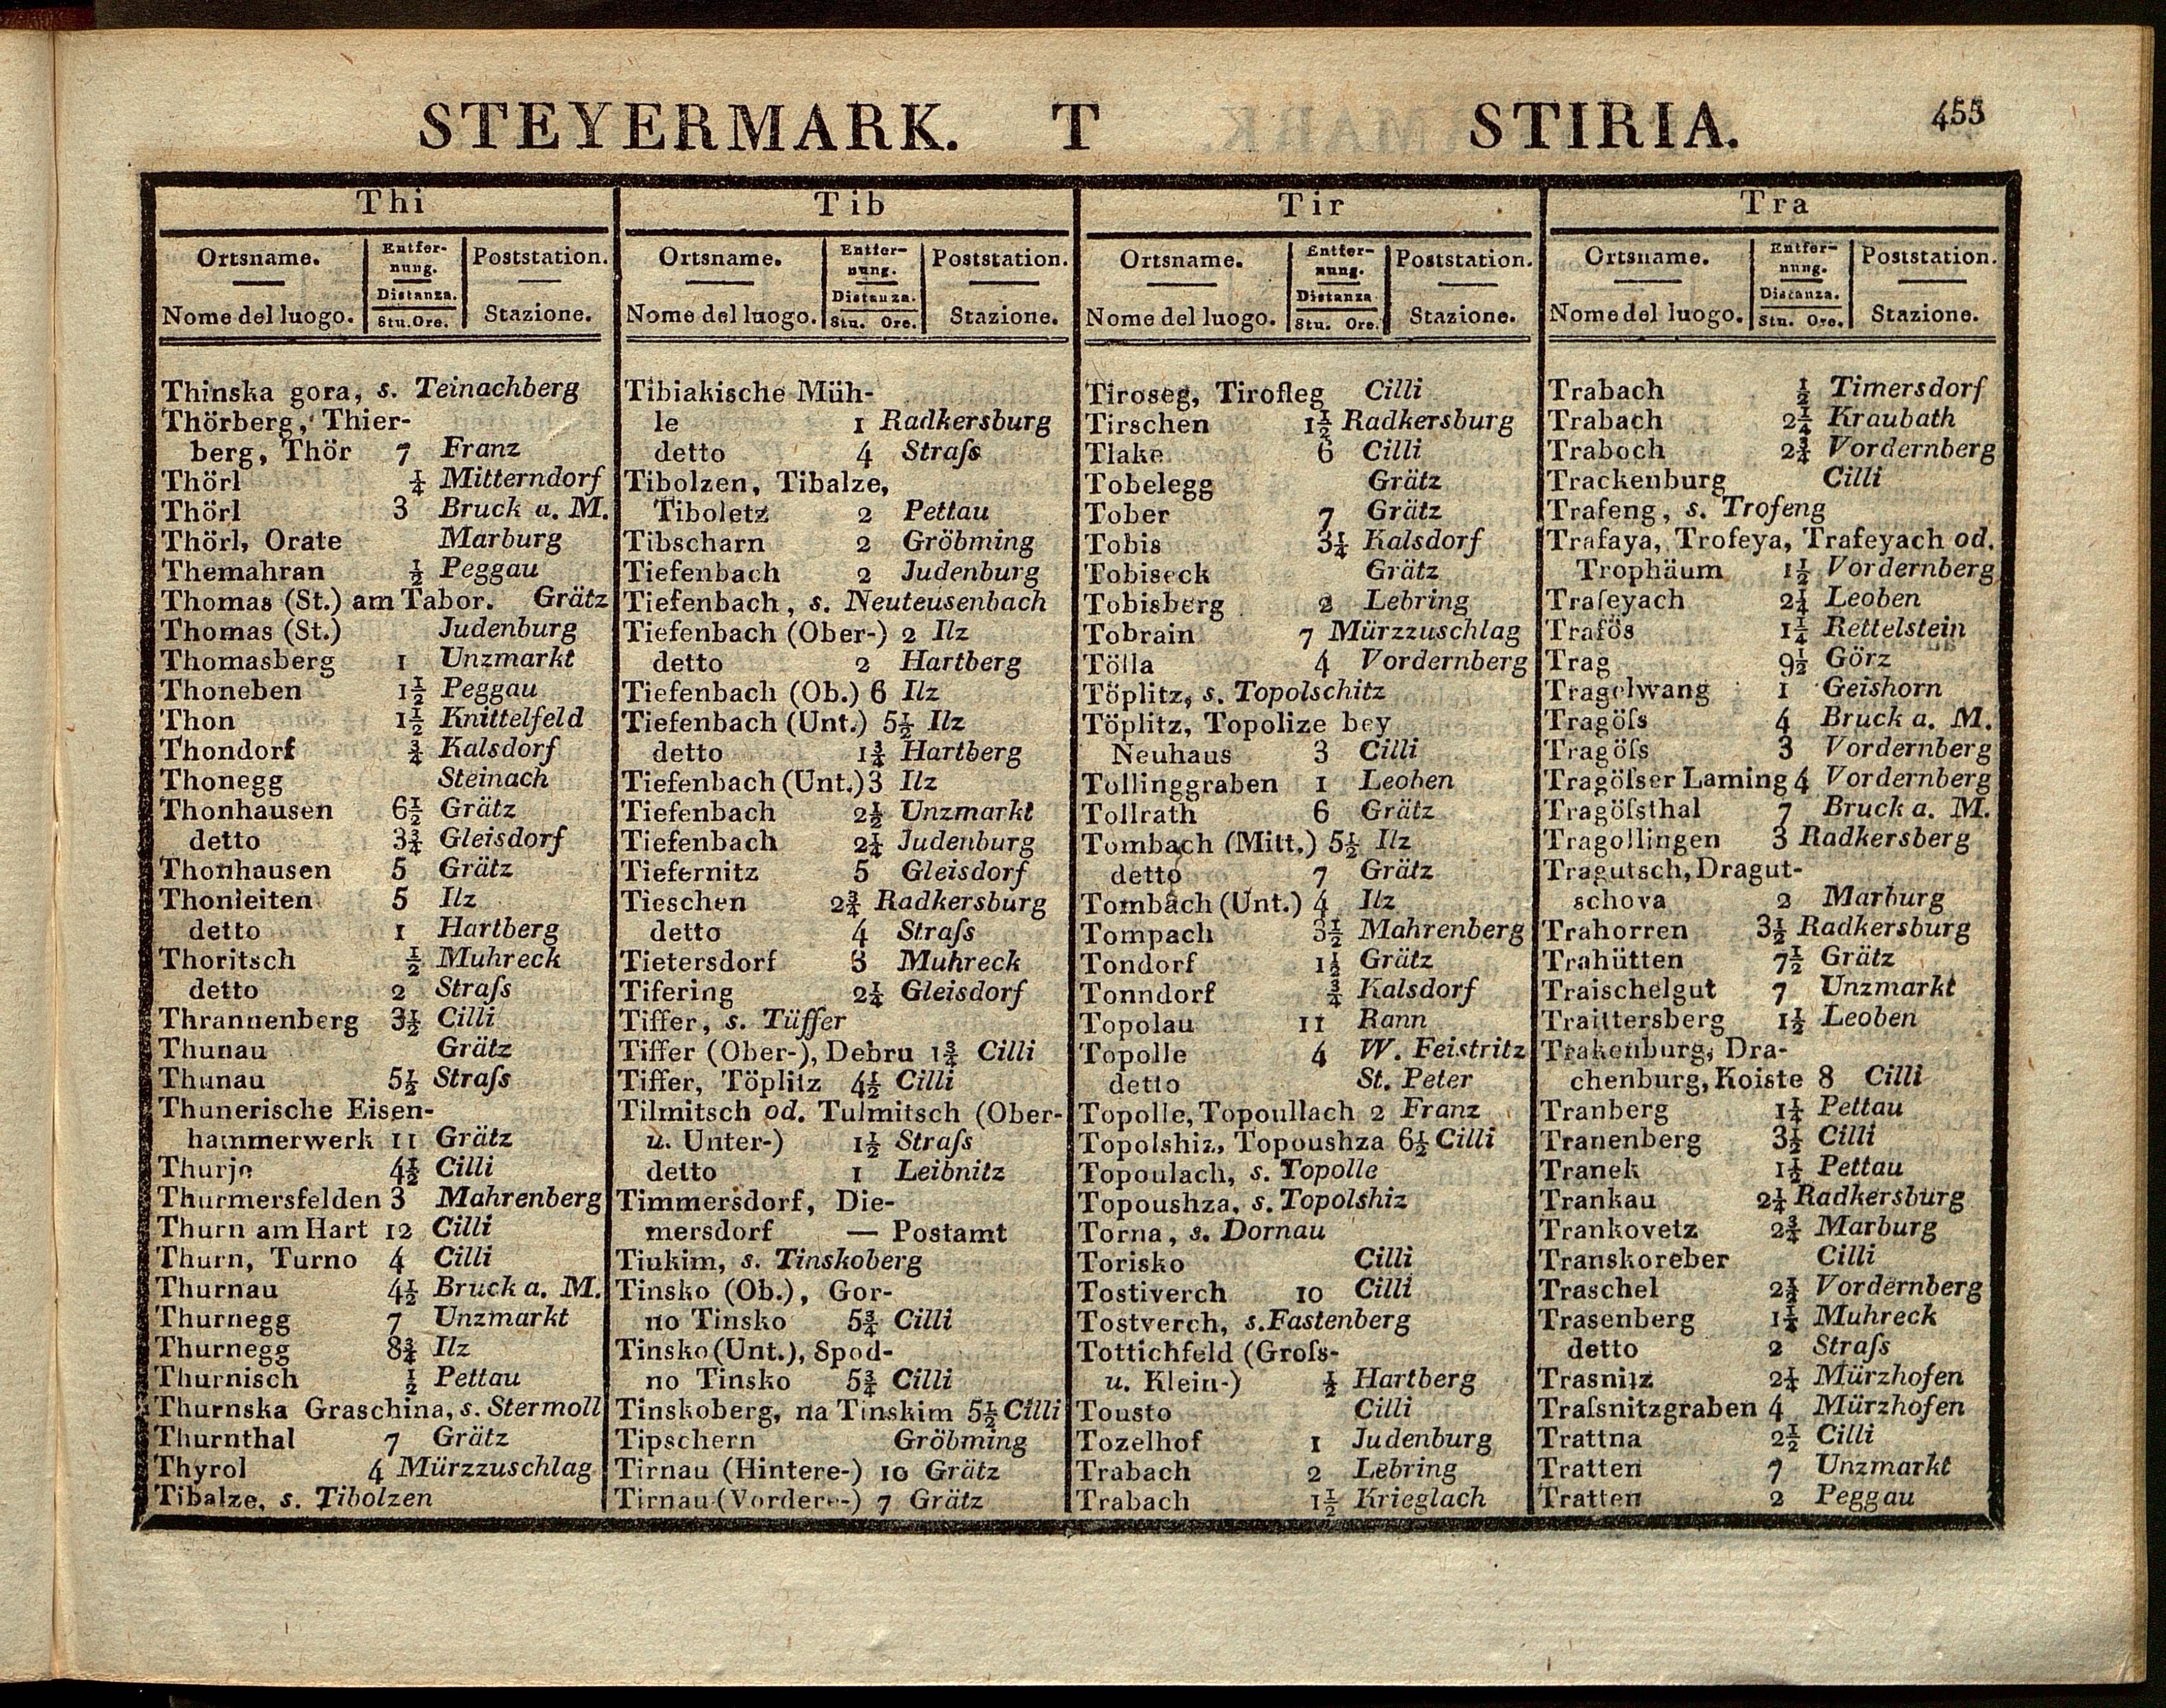 STEYERMARK. T STIRIA. 453
Thi
Ortsname. Entfernung. Poststation.
Nome del luogo. Distanza. Stu. Ore. Stazione.
Thinska gora, s. Teinachberg
Thörberg, Thier-
berg, Thör 7 Franz
Thörl ¼ Mitterndorf
Thörl 3 Bruck a. M.
Thörl, Orate Marburg
Themahran ½ Peggau
Thomas (St.) am Tabor. Grätz
Thomas (St.) Judenburg
Thomasberg 1 Unzmarkt
Thoneben 1½ Peggau
Thon 1½ Knittelfeld
Thondorf ¾ Kalsdorf
Thonegg Steinach
Thonhausen 6½ Grätz
detto 3¾ Gleisdorf
Thonhausen 5 Grätz
Thonleiten 5 Ilz
detto 1 Hartberg
Thoritsch ½ Muhreck
detto 2 Straſs
Thrannenberg 3½ Cilli
Thunau Grätz
Thunau 5½ Straſs
Thunerische Eisen-
hammerwerk 11 Grätz
Thurje 4½ Cilli
Thurmersfelden 3 Mahrenberg
Thurn am Hart 12 Cilli
Thurn, Turno 4 Cilli
Thurnau 4½ Bruck a. M.
Thurnegg 7 Unzmarkt
Thurnegg 8¾ Ilz
Thurnisch ½ Pettau
Thurnska Graschina, s. Stermoll
Thurnthal 7 Grätz
Thyrol 4 Mürzzuschlag
Tibalze, s. Tibolzen
Tib
Ortsname. Entfernung. Poststation.
Nome del luogo. Distanza. Stu. Ore. Stazione.
Tibiakische Müh-
le 1 Radkersburg
detto 4 Straſs
Tibolzen, Tibalze,
Tiboletz 2 Pettau
Tibscharn 2 Gröbming
Tiefenbach 2 Judenburg
Tiefenbach, s. Neuteusenbach
Tiefenbach (Ober-) 2 Ilz
detto 2 Hartberg
Tiefenbach (Ob.) 6 Ilz
Tiefenbach (Unt.) 5½ Ilz
detto 1¾ Hartberg
Tiefenbach (Unt.) 3 Ilz
Tiefenbach 2½ Unzmarkt
Tiefenbach 2¼ Judenburg
Tiefernitz 5 Gleisdorf
Tieschen 2¾ Radkersburg
detto 4 Straſs
Tietersdorf 3 Muhreck
Tifering 2¼ Gleisdorf
Tiffer, s. Tüffer
Tiffer (Ober-), Debru 1¾ Cilli
Tiffer, Töplitz 4½ Cilli
Tilmitsch od. Tulmitsch (Ober-
u. Unter-) 1½ Straſs
detto 1 Leibnitz
Timmersdorf, Die-
mersdorf — Postamt
Tiukim, s. Tinskoberg
Tinsko (Ob.), Gor-
no Tinsko 5¾ Cilli
Tinsko (Unt.), Spod-
no Tinsko 5¾ Cilli
Tinskoberg, na Tinskim 5½ Cilli
Tipschern Gröbming
Tirnau (Hintere-) 10 Grätz
Tirnau (Vordere-) 7 Grätz
Tir
Ortsname. Entfernung. Poststation.
Nome del luogo. Distanza Stu. Ore. Stazione.
Tiroseg, Tirofleg Cilli
Tirschen 1½ Radkersburg
Tlake 6 Cilli
Tobelegg Grätz
Tober 7 Grätz
Tobis 3¼ Kalsdorf
Tobiseck Grätz
Tobisberg 2 Lebring
Tobrain 7 Mürzzuschlag
Tölla 4 Vordernberg
Töplitz, s. Topolschitz
Töplitz, Topolize bey
Neuhaus 3 Cilli
Tollinggraben 1 Leoben
Tollrath 6 Grätz
Tombach (Mitt.) 5½ Ilz
detto 7 Grätz
Tombach (Unt.) 4 Ilz
Tompach 3½ Mahrenberg
Tondorf 1½ Grätz
Tonndorf ¾ Kalsdorf
Topolau 11 Rann
Topolle 4 W. Feistritz
detto St. Peter
Topolle, Topoullach 2 Franz
Topolshiz, Topoushza 6½ Cilli
Topoulach, s. Topolle
Topoushza, s. Topolshiz
Torna, s. Dornau
Torisko Cilli
Tostiverch 10 Cilli
Tostverch, s. Fastenberg
Tottichfeld (Groſs-
u. Klein-) ½ Hartberg
Tousto Cilli
Tozelhof 1 Judenburg
Trabach 2 Lebring
Trabach 1½ Krieglach
Tra
Ortsname. Entfernung. Poststation.
Nome del luogo. Distanza. Stu. Ore. Stazione.
Trabach ½ Timersdorf
Trabach 2¼ Kraubath
Traboch 2¾ Vordernberg
Trackenburg Cilli
Trafeng, s. Trofeng
Trafaya, Trofeya, Trafeyach od.
Trophäum 1½ Vordernberg
Trafeyach 2¼ Leoben
Trafös 1¼ Rettelstein
Trag 9½ Görz
Tragelwang 1 Geishorn
Tragöſs 4 Bruck a. M.
Tragöſs 3 Vordernberg
Tragöſser Laming 4 Vordernberg
Tragöſsthal 7 Bruck a. M.
Tragollingen 3 Radkersberg
Tragutsch, Dragut-
schova 2 Marburg
Trahorren 3½ Radkersburg
Trahütten 7½ Grätz
Traischelgut 7 Unzmarkt
Traittersberg 1½ Leoben
Trakenburg, Dra-
chenburg, Koiste 8 Cilli
Tranberg 1¼ Pettau
Tranenberg 3½ Cilli
Tranek 1½ Pettau
Trankau 2¼ Radkersburg
Trankovetz 2¾ Marburg
Transkoreber Cilli
Traschel Vordernberg
Trasenberg Muhreck
detto 2 Straſs
Trasnitz 2¼ Mürzhofen
Traſsnitzgraben 4 Mürzhofen
Trattna 2½ Cilli
Tratten 7 Unzmarkt
Tratten 2 Peggau